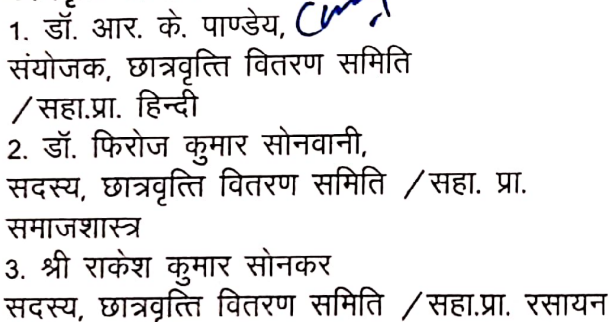 1. डॉ. आर. के. पाण्डेय,
संयोजक, छात्रवृत्ति वितरण समिति
/सहा.प्रा. हिन्दी
2. डॉ. फिरोज कुमार सोनवानी,
सदस्य, छात्रवृत्ति वितरण समिति /सहा. प्रा.
समाजशास्त्र
3. श्री राकेश कुमार सोनकर
सदस्य, छात्रवृत्ति वितरण समिति /सहा.प्रा. रसायन